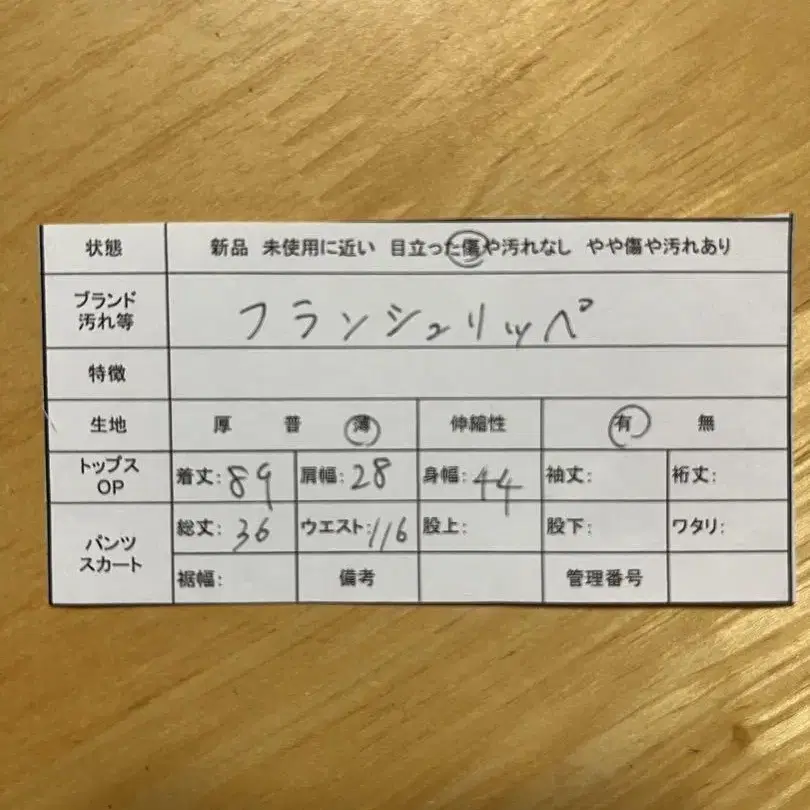 状態 新品 未使用に近い 目立った傷や汚れなし やや傷や汚れあり
ブランド
汚れ等 フランシュリッペ
特徴
生地 厚 普 薄 伸縮性 有 無
トップス
OP 着丈:89 肩幅:28 身幅:44 袖丈: 裄丈:
パンツ
スカート 総丈:36 ウエスト:116 股上: 股下: ワタリ:
裾幅: 備考 管理番号